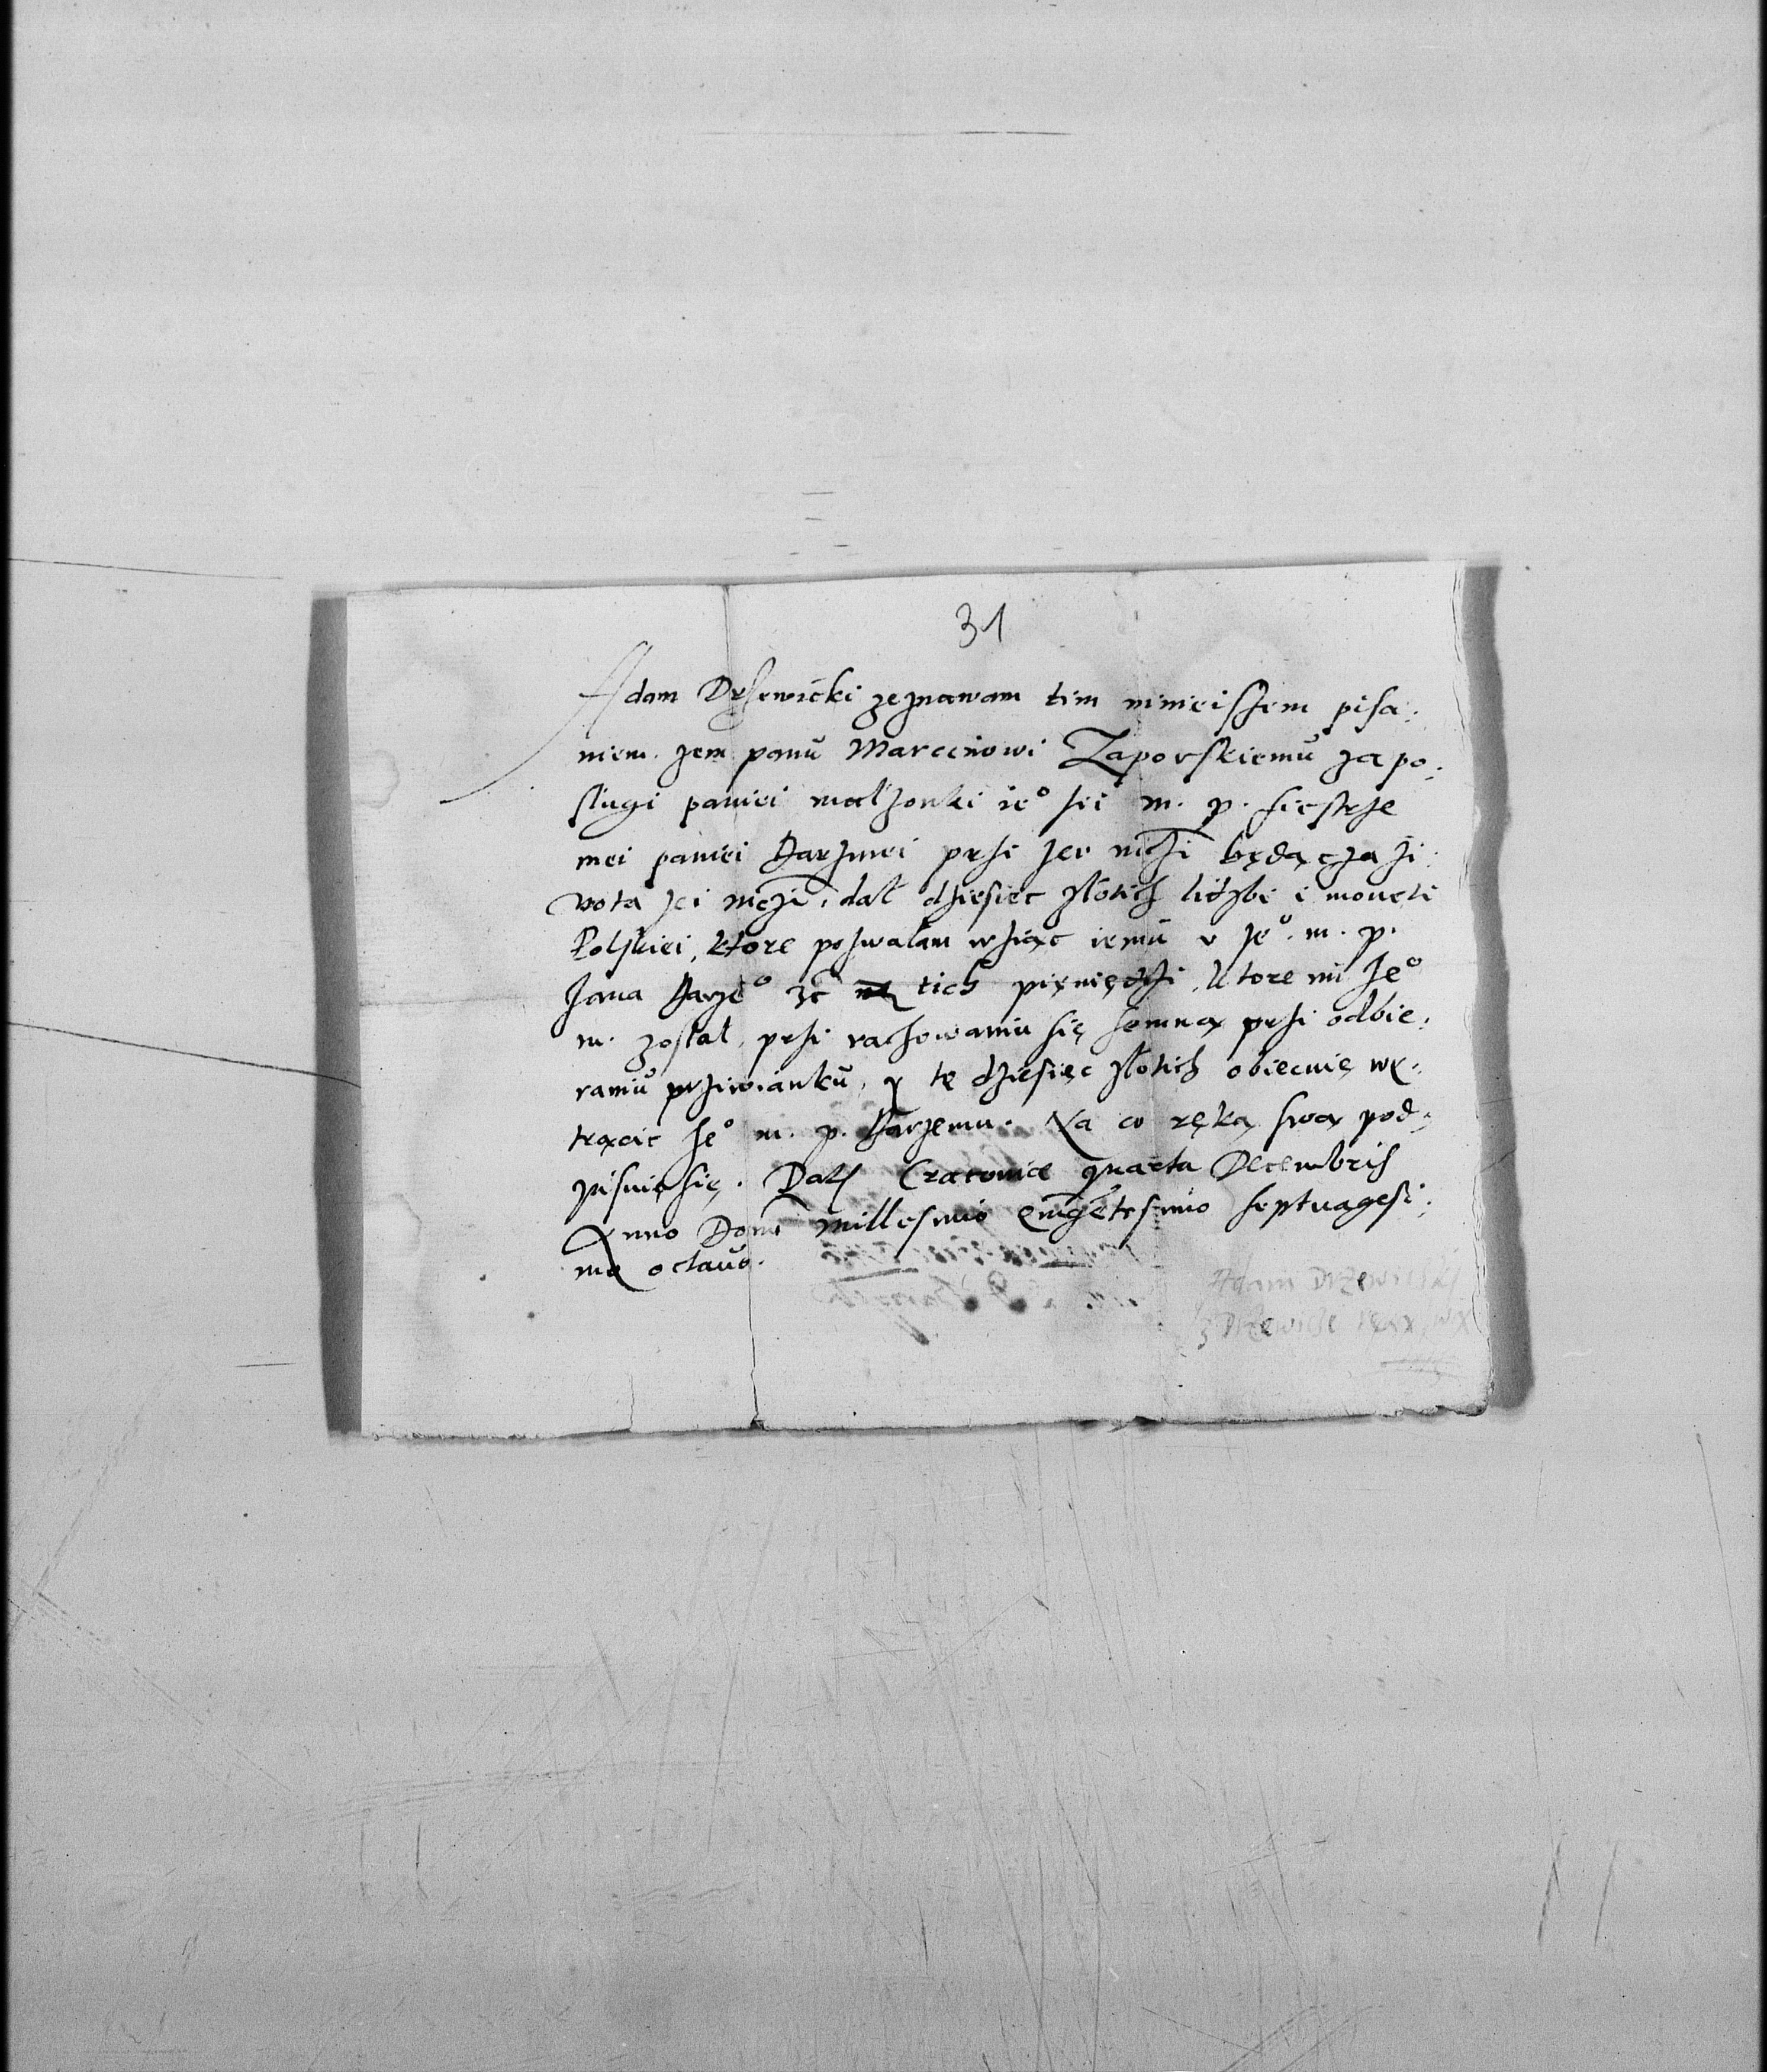 31
Adam Drzewicki zeznawam tim ninieiszem pisa:
niem. zem panu Marcinowi Zaporskiemu za po:
slugi paniei malzonki ieº Jei m. p. siestrze
mei paniei Barzinei przi Jei mczi będącz za zi:
vota Jei mczi, dal dziesiec zlotich liczbi i moneti
Polskiei, ktore pozwalam wziąc iemu v Jeº. m. p.
Jana Barzeº ze tich pięniędzi, ktore mi Jeº
m. zostal, przi rachowaniu się semną przi odbie:
raniu prziwianku, y te dziesięc zlotich obiecuię wy:
trącic Jeº m. p. Barzemu. Na co ręką swą pod:
pisuię się. Dat Cracoviae quarta Decembris
Anno Domi millesimo quingetesimo septuagesi:
mo octauo.
Adam Drzewicki
z Drzewicze ręką swą